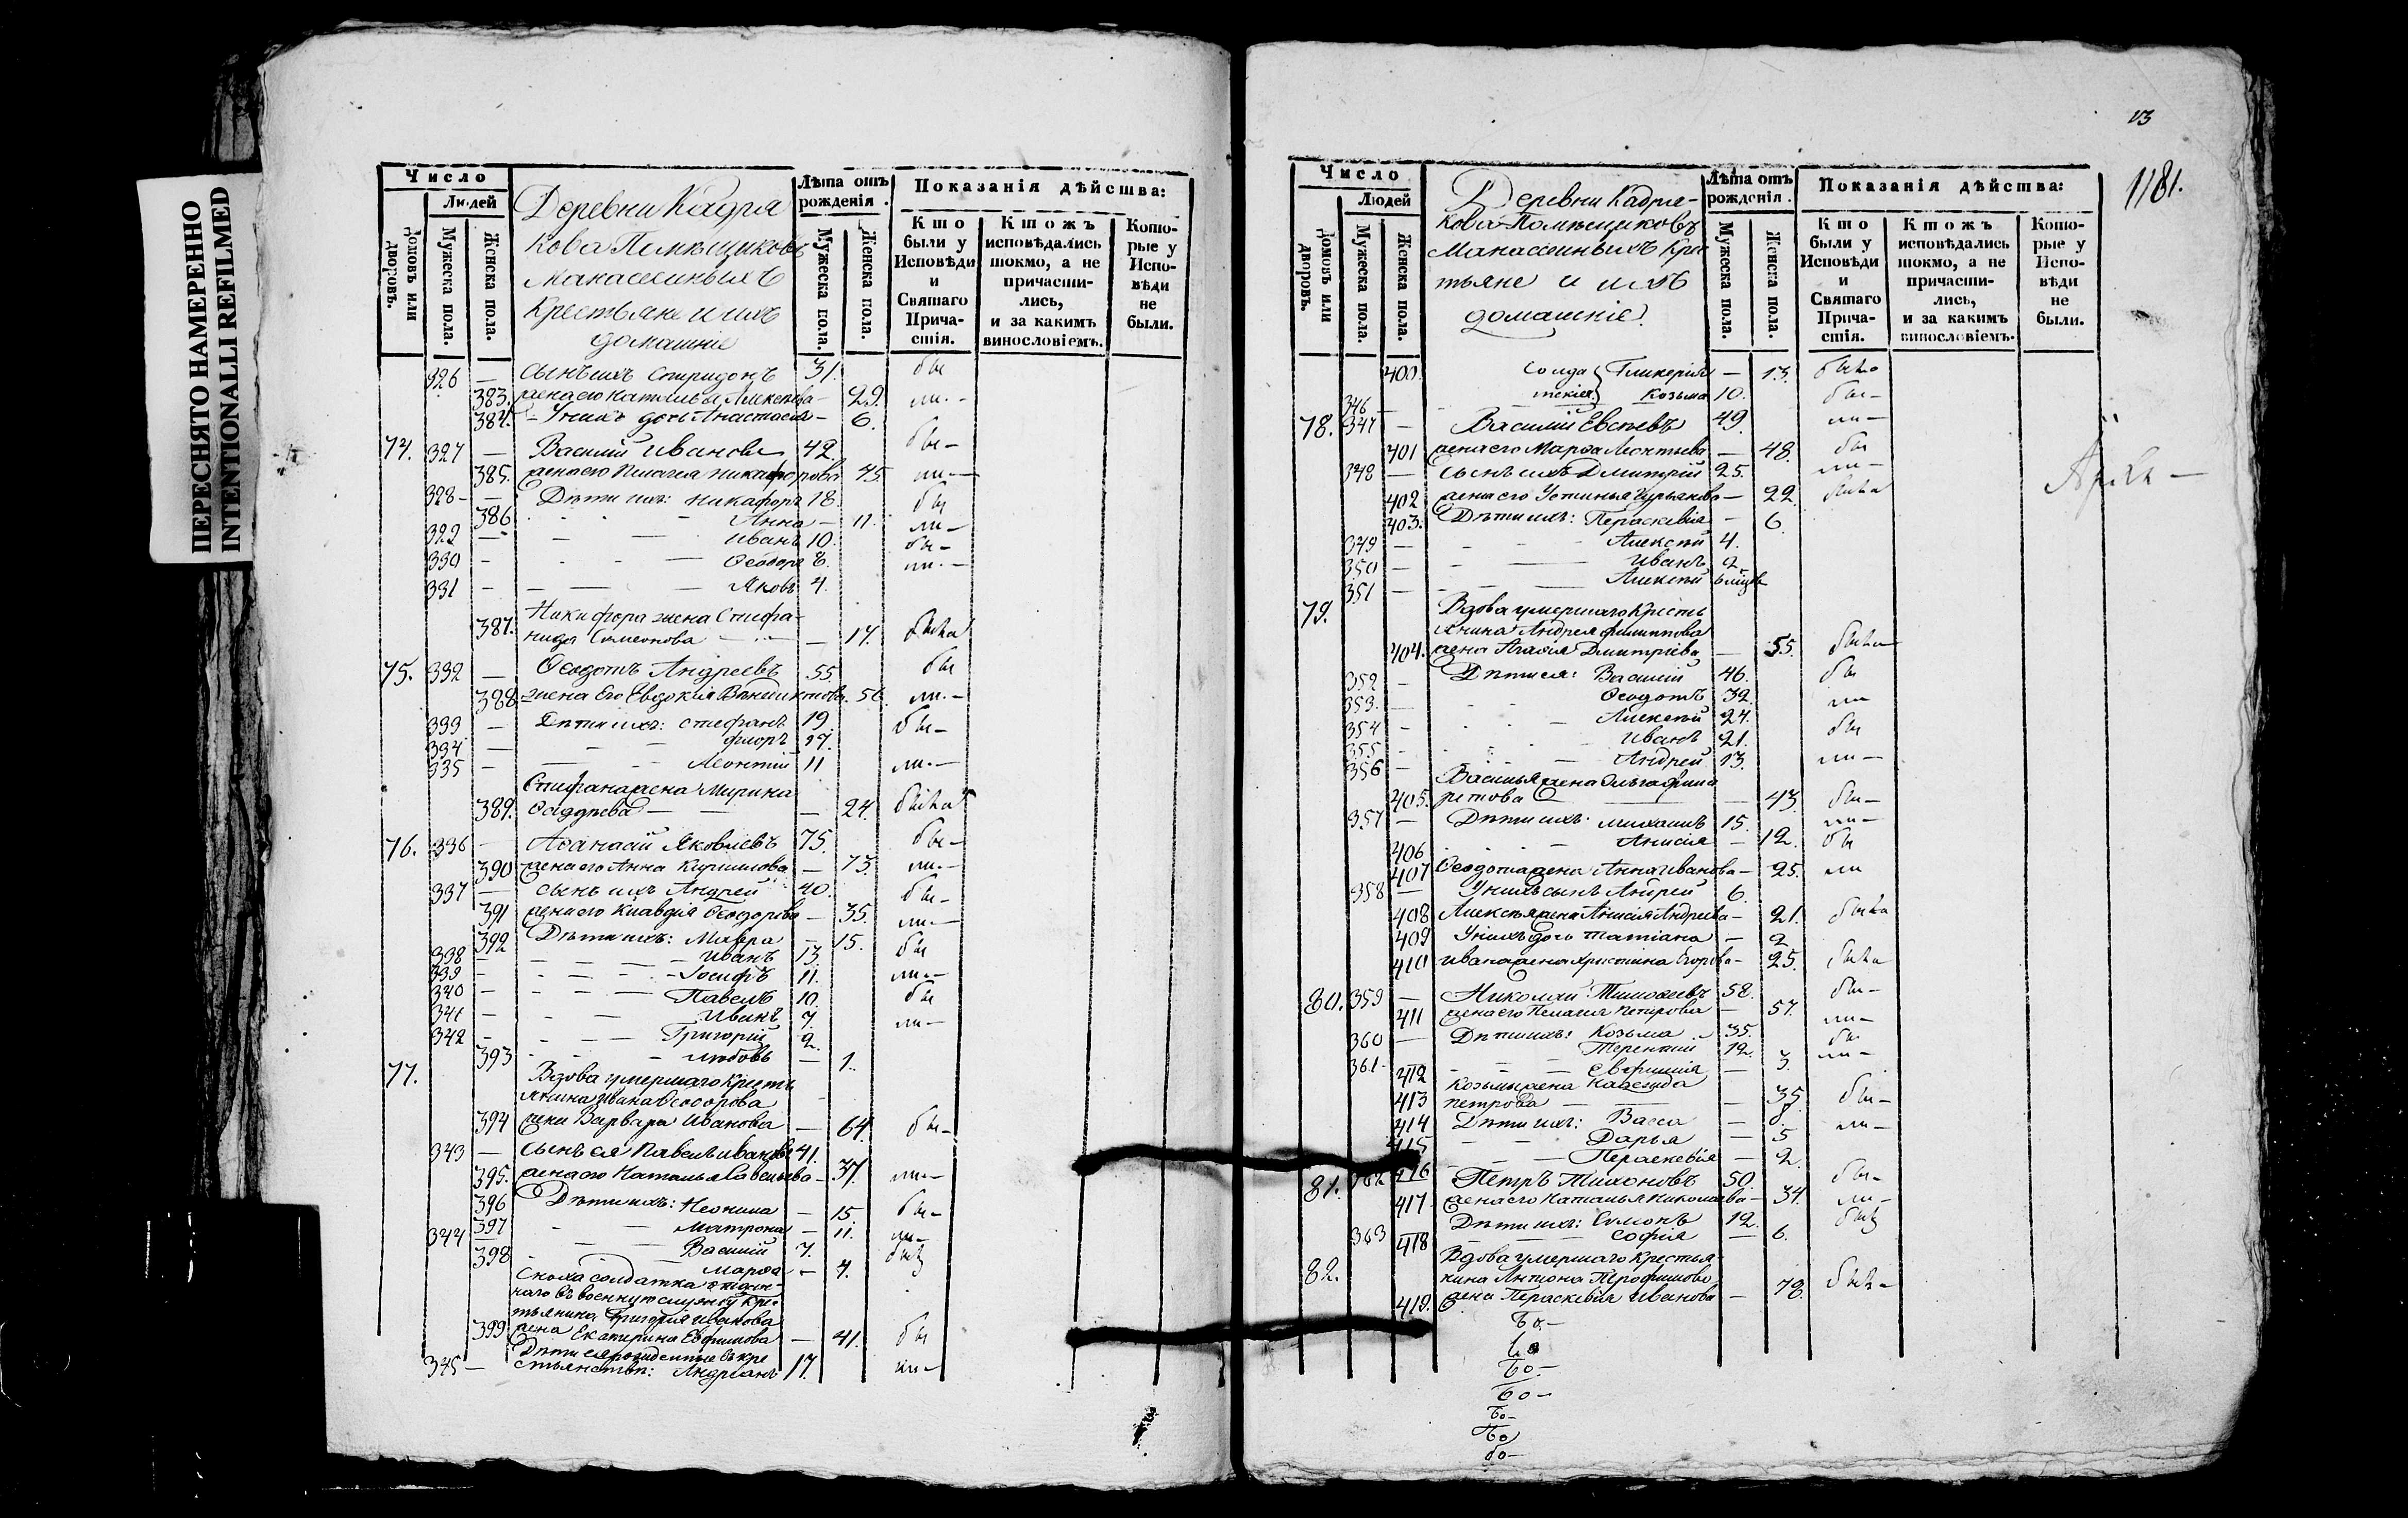 ПЕРЕСНЯТО НАМЕРЕННО
INTENTIONALLI REFILMED
Число
Людей
Домовъ или дворовъ.
Мужеска пола.
Женска пола.
Деревни Кадря
кова Помѣщиковъ
Манасеиныхъ
Крестьяне и ихъ
домашніе
Лѣта отъ рожденія.
Мужеска пола.
Женска пола.
Показанія дѣйства:
Кто были у Исповѣди и Святаго Причастія.
Ктожъ исповѣдались токмо, а не причастились, и за какимъ винословіемъ.
Которые у Исповѣди не были.
326 — сынъ ихъ Спиридонъ 31. бы
383. жена его Наталья Алексѣева — 29. ли —
384. — У нихъ дочь Анастасія — 6.
74. 327 — Василій Ивановъ 42. бы —
385. жена его Пелагея Никифорова 45. ли —
328 — — Дѣти ихъ: Никифоръ 18. бы
386 Анна — 11. ли —
329 — Иванъ 10. бы —
330 — Ѳеодоръ 8. ли —
331 — Яковъ 4.
Никифора жена Стефа-
387. нида Симеонова — 17. была
75. 332 — Ѳеодотъ Андреевъ 55. бы
388 — жена Его Евдокія Венедиктова 56. ли —
333 — Дѣти ихъ: Стефанъ 19. бы —
334 — Флоръ 17.
335 — Леонтій 11 ли —
Стефана жена Марина
389. — 24. была
76. 336 — Аѳанасій Яковлевъ 75. бы —
390 жена его Анна Кирилова — 73. ли —
337 — сынъ ихъ Андрей 40. бы —
391 жена его Клавдія Ѳеодорова — 35. ли —
392 Дѣти ихъ: Мавра — 15. бы
338 — Иванъ 13.
339 — Іосифъ 11. ли —
340 — Павелъ 10. бы
341 — Иванъ 7. ли —
342 — Григорій 2.
393 Любовь — 1.
77. Вдова умершаго Кресть
янина Ивана Ѳеодорова
394 жена Варвара Иванова — 64. бы —
343 — Сынъ ея Павелъ Ивановъ 41.
395. жена его Наталья Савельева — 37. ли —
396 Дѣти ихъ: Неонила — 15. бы —
397 Матрона — 11. ли —
344 Василій 7.
398 Марѳа — 4.
Сноха солдатка отдан-
наго въ военную службу кре-
стьянина Григорія Иванова
399 жена Екатерина Ефимова — 41. бы
Дѣти ея рожденные въ кре
345 — стьянствѣ: Андріанъ 17. ли —
13
1181.
Число
Людей
Домовъ или дворовъ.
Мужеска пола.
Женска пола.
Деревни Кадря-
кова Помѣщиковъ
Манасеиныхъ Крес
тьяне и ихъ
домашніе.
Лѣта отъ рожденія.
Мужеска пола.
Женска пола.
Показанія дѣйства:
Кто были у Исповѣди и Святаго Причастія.
Ктожъ исповѣдались токмо, а не причастились, и за какимъ винословіемъ.
Которые у Исповѣди не были.
400. Солда Гликерія — 13. была
346 — тскія Козьма 10. бы —
78. 347 — Василій Евсѣевъ 49. ли —
401 жена его Марѳа Леонтьева — 48. бы
348 — Сынъ ихъ Дмитрій 25. ли —
402 жена его Устинья Гурьянова — 22. была
403. Дѣти ихъ: Параскевія — 6.
349 — Алексѣй 4.
350 — Иванъ 2.
351 — Алексѣй
79. Вдова умершаго Кресть
янина Андрея Филиппова
404. жена Агаѳія Дмитріева — 55. была
352 — Дѣти ея: Василій 46. бы
353. — Ѳеодотъ 32. ли
354 — Алексѣй 24.
355 — Иванъ 21. бы
356 — Андрей 13. ли —
Василья жена Ольга Фила
405. ретова — 43. бы —
357 — Дѣти ихъ: Михаилъ 15. ли —
406 Анисія — 12. бы
407 Ѳеодота жена Анна Иванова — 25. ли
358 — У нихъ сынъ Андрей 6.
408 Алексѣя жена Анисія Андреева — 21. была
409 У нихъ дочь Татіана — 2
410 Ивана жена Христина Егорова — 25. была
80. 359 — Николай Тимоѳеевъ 58. бы —
411 жена его Пелагея Петрова — 57. ли —
360 — Дѣти ихъ: Козьма 35. бы
361 Терентій 12. ли —
412 Евфимія — 3.
Козьмы жена Надежда
413 Петрова — 35. бы —
414 Дѣти ихъ: Васса — 8. ли —
415 Дарья — 5
416 Параскевія — 2.
81. 362 Петръ Тихоновъ 50. бы —
417 жена его Наталья Николаева — 34. ли —
363 Дѣти ихъ: Симонъ 12.
418 Софія — 6.
82. Вдова умершаго Крестья-
нина Антона
419. жена Параскевія Иванова — 78. была